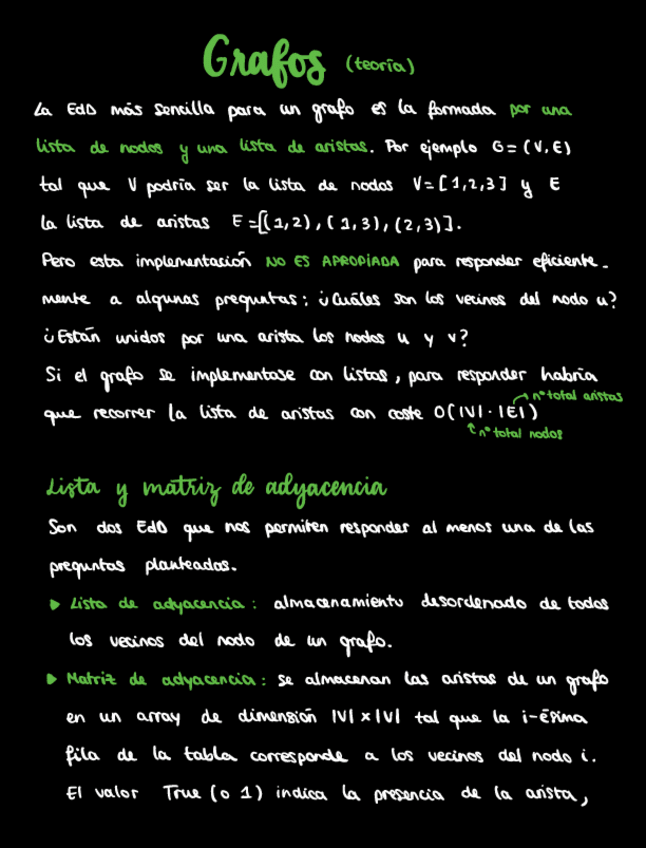 Grafos (teoría)
La EdD más sencilla para un grafo es la formada por una
lista de nodos y una lista de aristas. Por ejemplo G=(V,E)
tal que V podría ser la lista de nodos V=[1,2,3] y E
la lista de aristas E=[(1,2),(1,3),(2,3)].
Pero esta implementación NO ES APROPIADA para responder eficiente-
mente a algunas preguntas: ¿Cuáles son los vecinos del nodo u?
¿Están unidos por una arista los nodos u y v?
Si el grafo se implementase con listas, para responder habría
nº total aristas
que recorrer la lista de aristas con coste O(|V|·|E|)
nº total nodos
Lista y matriz de adyacencia
Son dos EdD que nos permiten responder al menos una de las
preguntas planteadas.
▸ Lista de adyacencia: almacenamiento desordenado de todos
los vecinos del nodo de un grafo.
▸ Matriz de adyacencia: se almacenan las aristas de un grafo
en un array de dimensión |V|x|V| tal que la i-ésima
fila de la tabla corresponde a los vecinos del nodo i.
El valor True (o 1) indica la presencia de la arista,